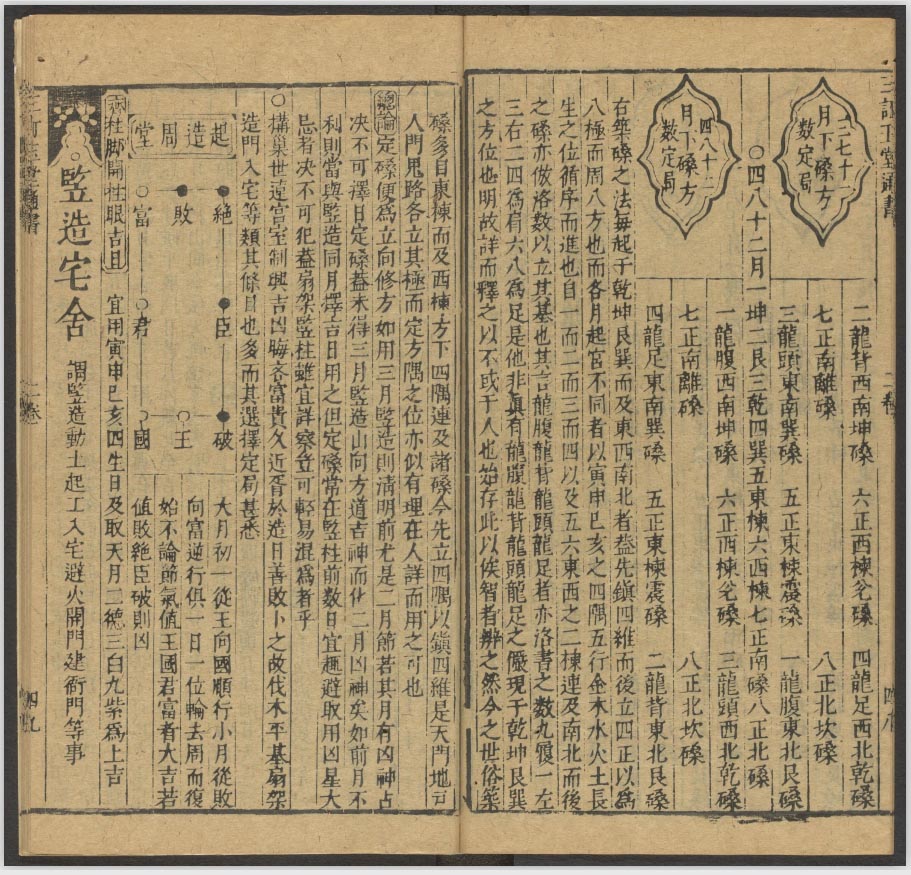 二七十一
月下磉方
數定局
二龍背西南坤磉　六正西棟兌磉　四龍足西北乾磉
七正南離磉　八正北坎磉
三龍頭東南巽磉　五正東棟震磉　一龍腹東北艮磉
○四八十二月一坤二艮三乾四巽五東棟六西棟七正南磉八正北磉
四八十二
月下磉方
數定局
一龍腹西南坤磉　六正西棟兌磉　三龍頭西北乾磉
七正南離磉　八正北坎磉
四龍足東南巽磉　五正東棟震磉　二龍背東北艮磉
右築磉之法每起于乾坤艮巽而及東西南北者蓋先鎮四維而後立四正以為
八極而周八方也而各月起宮不同者以寅申巳亥之四隅五行金木水火土長
生之位循序而進也自一而二而三而四以及五六東西之二棟連及南北而後
之磉亦倣洛數以立其基也其言龍腹龍背龍頭龍足者亦洛書之數九履一左
三右二四為肩六八為足是他非真有龍腹龍背龍頭龍足之儼現于乾坤艮巽
之方位也明故詳而釋之以不或于人也始存此以俟智者辨之然今之世俗築
磉多自東棟而及西棟方下四隅連及諸磉今先立四隅以鎮四維是天門地戶
人門鬼路各立其極而定方隅之位亦似有理在人詳而用之可也
總論定磉便為立向修方如用三月監造則清明前尤是二月節若其月有凶神占
決不可擇日定磉蓋未得三月監造山向方道吉神而化二月凶神矣如前月不
利則當與監造同月擇吉日用之但定磉常在監柱前数日宜趨避取用凶星大
忌者決不可犯蓋扇架監柱雖宜詳察立可輕易混為者乎
○構巢世遠宮室制興吉凶晦吝富貴久近胥於造日善敗卜之故伐木平基扇架
造門入宅等類其條目也多而其選擇定局甚悉
起造周堂
絕　臣　破
敗　王
富　君　國
大月初一從王向國順行小月從敗
向富逆行俱一日一位輪去周而復
始不論節氣值王國君富者大吉若
值敗絕臣破則凶
齊柱脚開柱眼吉日　宜用寅申巳亥四生日及取天月二德三白九紫為上吉
監造宅舍　謂監造動土起工入宅避火開門建衙門等事